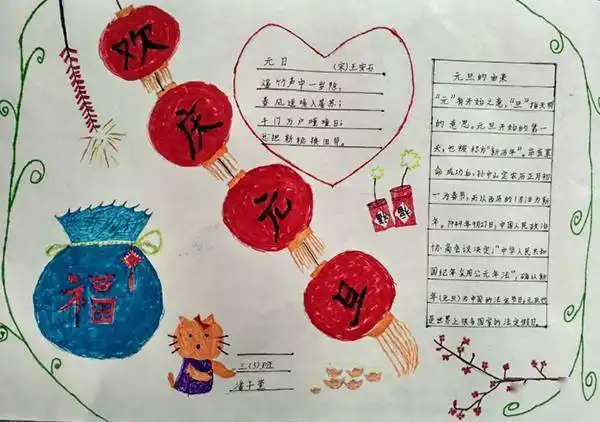 欢
庆
元
旦
元日
(宋)王安石
爆竹声中一岁除,
春风送暖入屠苏;
千门万户曈曈日;
总把新桃换旧符。
元旦的由来
"元"有开始之意,"旦"指天明
的意思。元旦开始的第一
天,也被称为"新历年"。辛亥革
命成功后,孙中山定农历正月初
一为春节,而以西历的1月1日为新
年。1949年9月27日,中国人民政治
协商会议决定:"中华人民共和
国纪年采用公元年法",确认新
年(元旦)为中国的法定节日,元旦也
是世界上很多国家的法定假日。
福
福
三(3)班
潘子萱